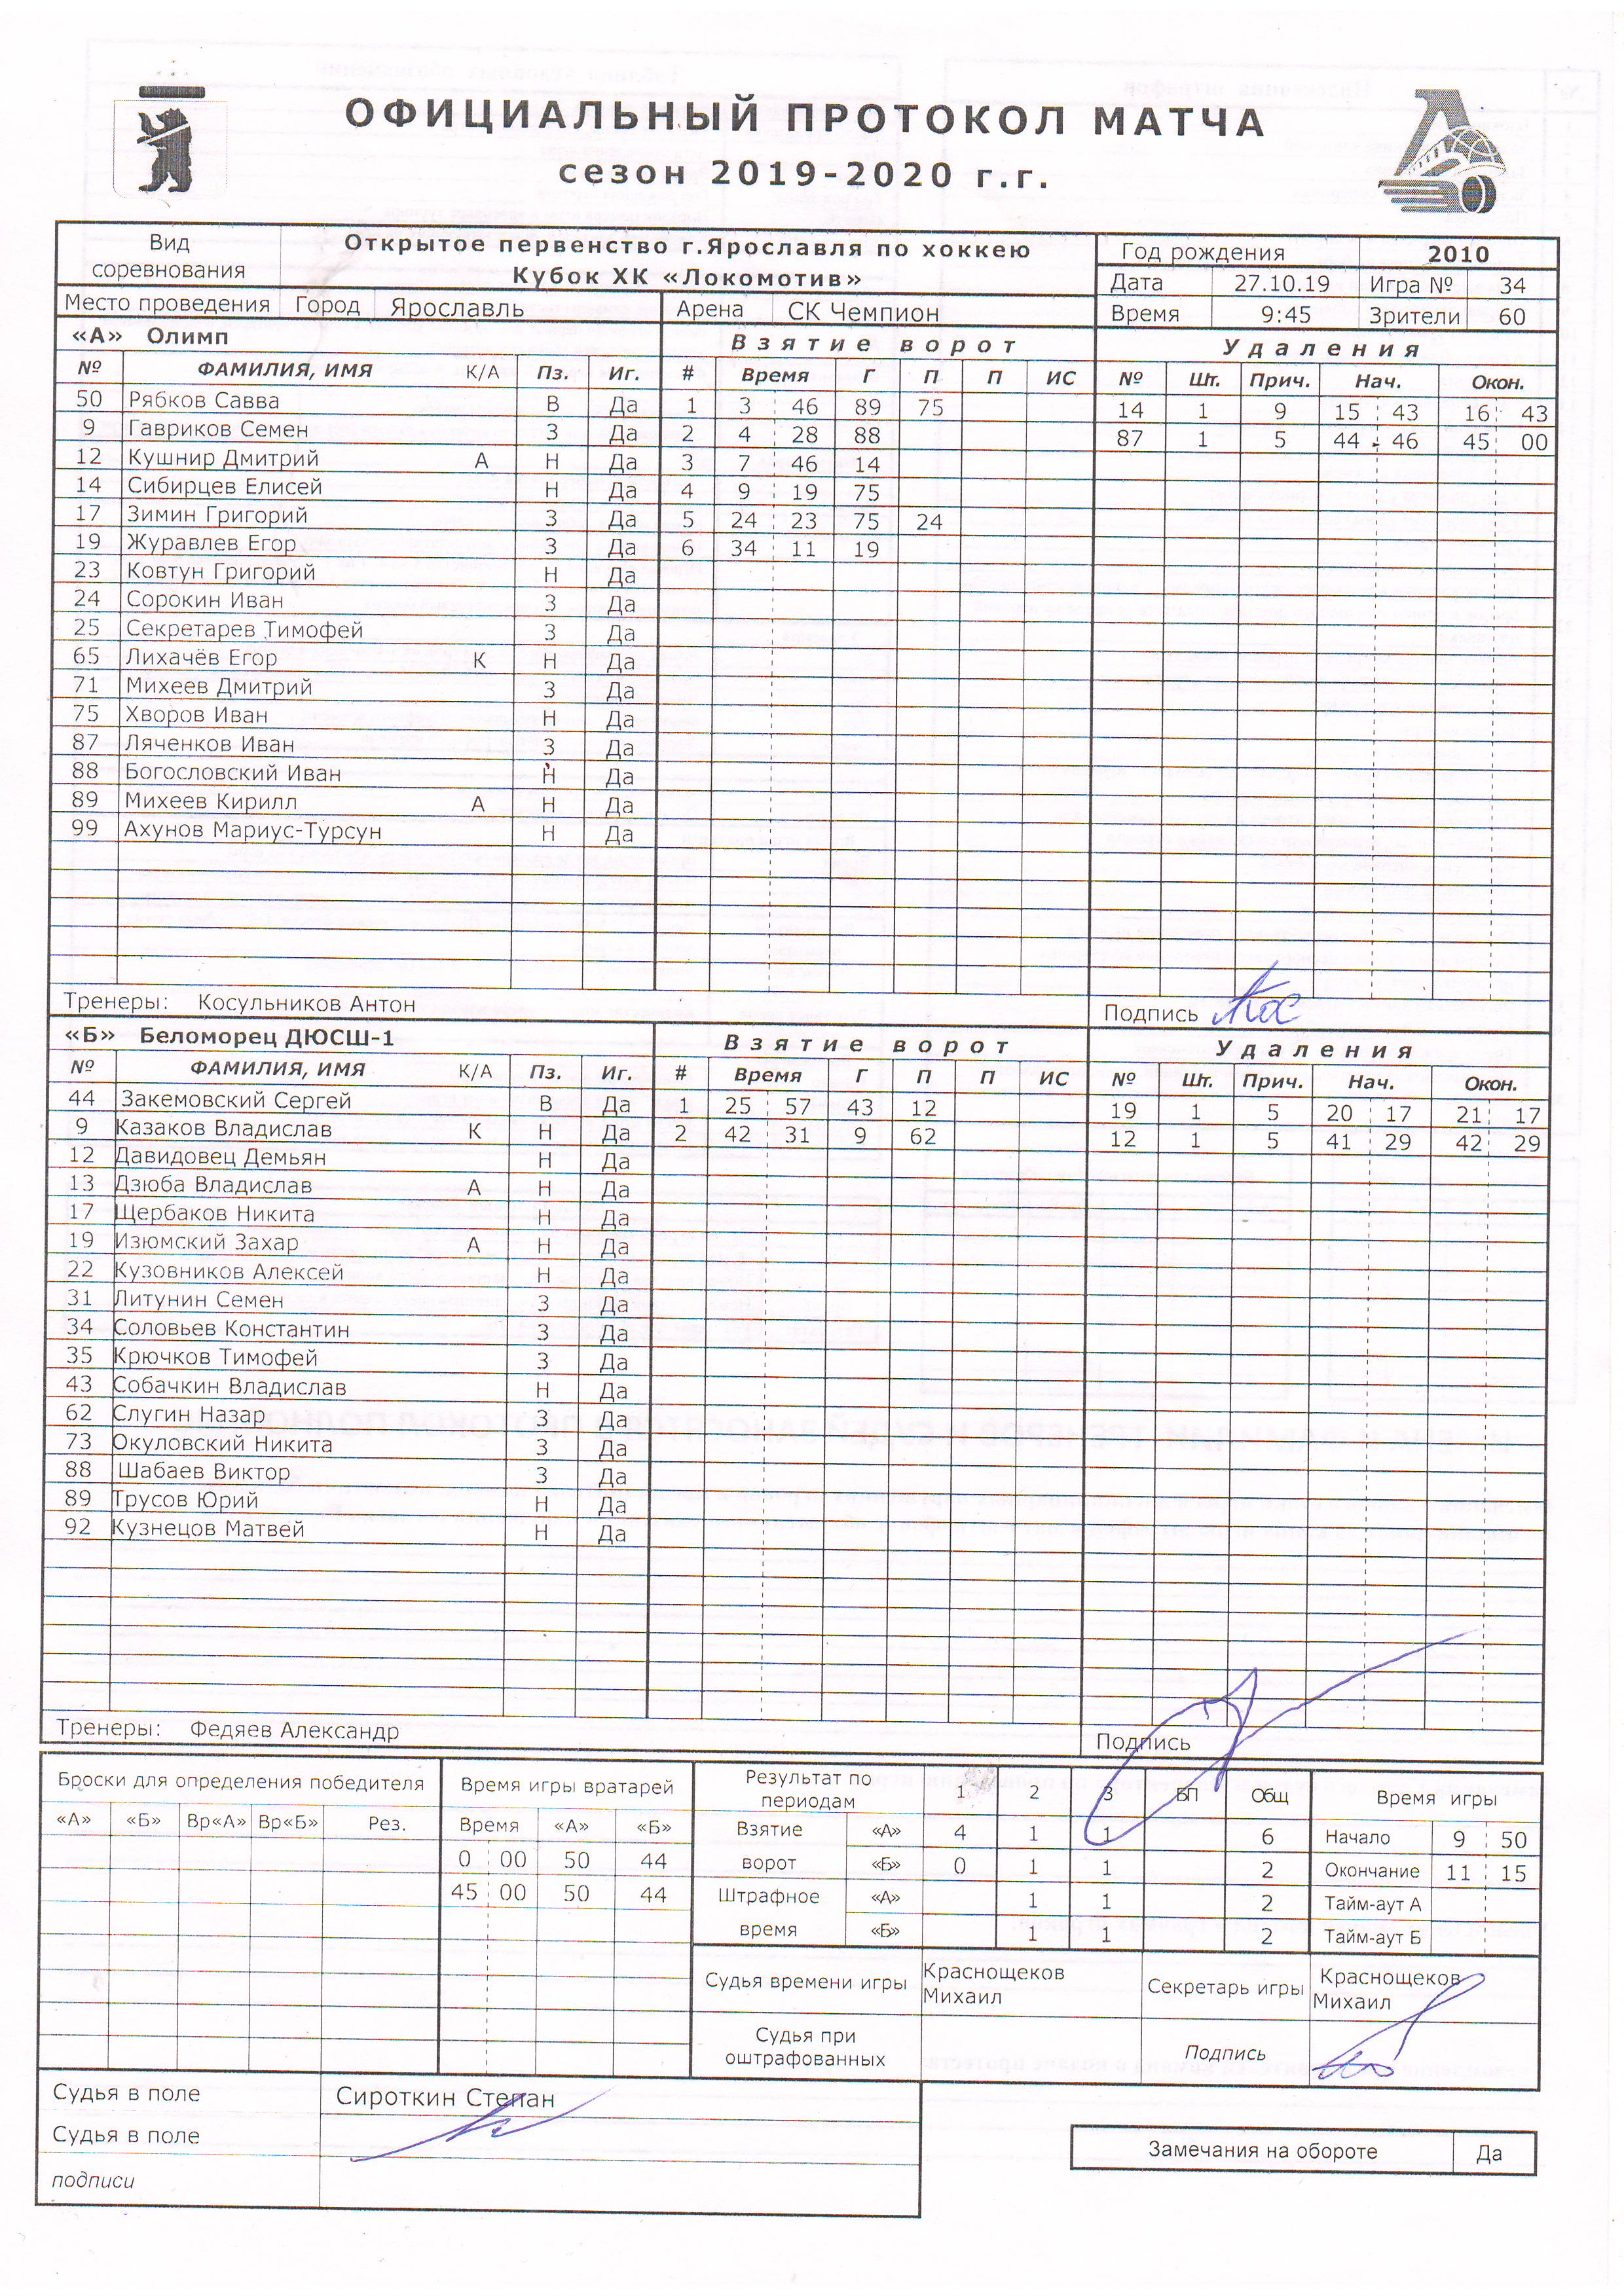 ОФИЦИАЛЬНЫЙ ПРОТОКОЛ МАТЧА
сезон 2019-2020 г.г.
Вид соревнования Открытое первенство г.Ярославля по хоккею Кубок ХК «Локомотив» Год рождения 2010
Дата 27.10.19 Игра № 34
Место проведения Город Ярославль Арена СК Чемпион Время 9:45 Зрители 60
«А» Олимп Взятие ворот Удаления
№ ФАМИЛИЯ, ИМЯ К/А Пз. Иг. # Время Г П П ИС № Шт. Прич. Нач. Окон.
50 Рябков Савва В Да 1 3 46 89 75 14 1 9 15 43 16 43
9 Гавриков Семен З Да 2 4 28 88 87 1 5 44 46 45 00
12 Кушнир Дмитрий А Н Да 3 7 46 14
14 Сибирцев Елисей Н Да 4 9 19 75
17 Зимин Григорий З Да 5 24 23 75 24
19 Журавлев Егор З Да 6 34 11 19
23 Ковтун Григорий Н Да
24 Сорокин Иван З Да
25 Секретарев Тимофей З Да
65 Лихачёв Егор К Н Да
71 Михеев Дмитрий З Да
75 Хворов Иван Н Да
87 Ляченков Иван З Да
88 Богословский Иван Н Да
89 Михеев Кирилл А Н Да
99 Ахунов Мариус-Турсун Н Да
Тренеры: Косульников Антон Подпись
«Б» Беломорец ДЮСШ-1 Взятие ворот Удаления
№ ФАМИЛИЯ, ИМЯ К/А Пз. Иг. # Время Г П П ИС № Шт. Прич. Нач. Окон.
44 Закемовский Сергей В Да 1 25 57 43 12 19 1 5 20 17 21 17
9 Казаков Владислав К Н Да 2 42 31 9 62 12 1 5 41 29 42 29
12 Давидовец Демьян Н Да
13 Дзюба Владислав А Н Да
17 Щербаков Никита Н Да
19 Изюмский Захар А Н Да
22 Кузовников Алексей Н Да
31 Литунин Семен З Да
34 Соловьев Константин З Да
35 Крючков Тимофей З Да
43 Собачкин Владислав Н Да
62 Слугин Назар З Да
73 Окуловский Никита З Да
88 Шабаев Виктор З Да
89 Трусов Юрий Н Да
92 Кузнецов Матвей Н Да
Тренеры: Федяев Александр Подпись
Броски для определения победителя Время игры вратарей Результат по периодам 1 2 3 БП Общ Время игры
«А» «Б» Вр«А» Вр«Б» Рез. Время «А» «Б» Взятие ворот «А» 4 1 1 6 Начало 9 50
0 00 50 44 «Б» 0 1 1 2 Окончание 11 15
45 00 50 44 Штрафное время «А» 1 1 2 Тайм-аут А
«Б» 1 1 2 Тайм-аут Б
Судья времени игры Краснощеков Михаил Секретарь игры Краснощеков Михаил
Судья при оштрафованных Подпись
Судья в поле Сироткин Степан
Судья в поле
подписи
Замечания на обороте Да